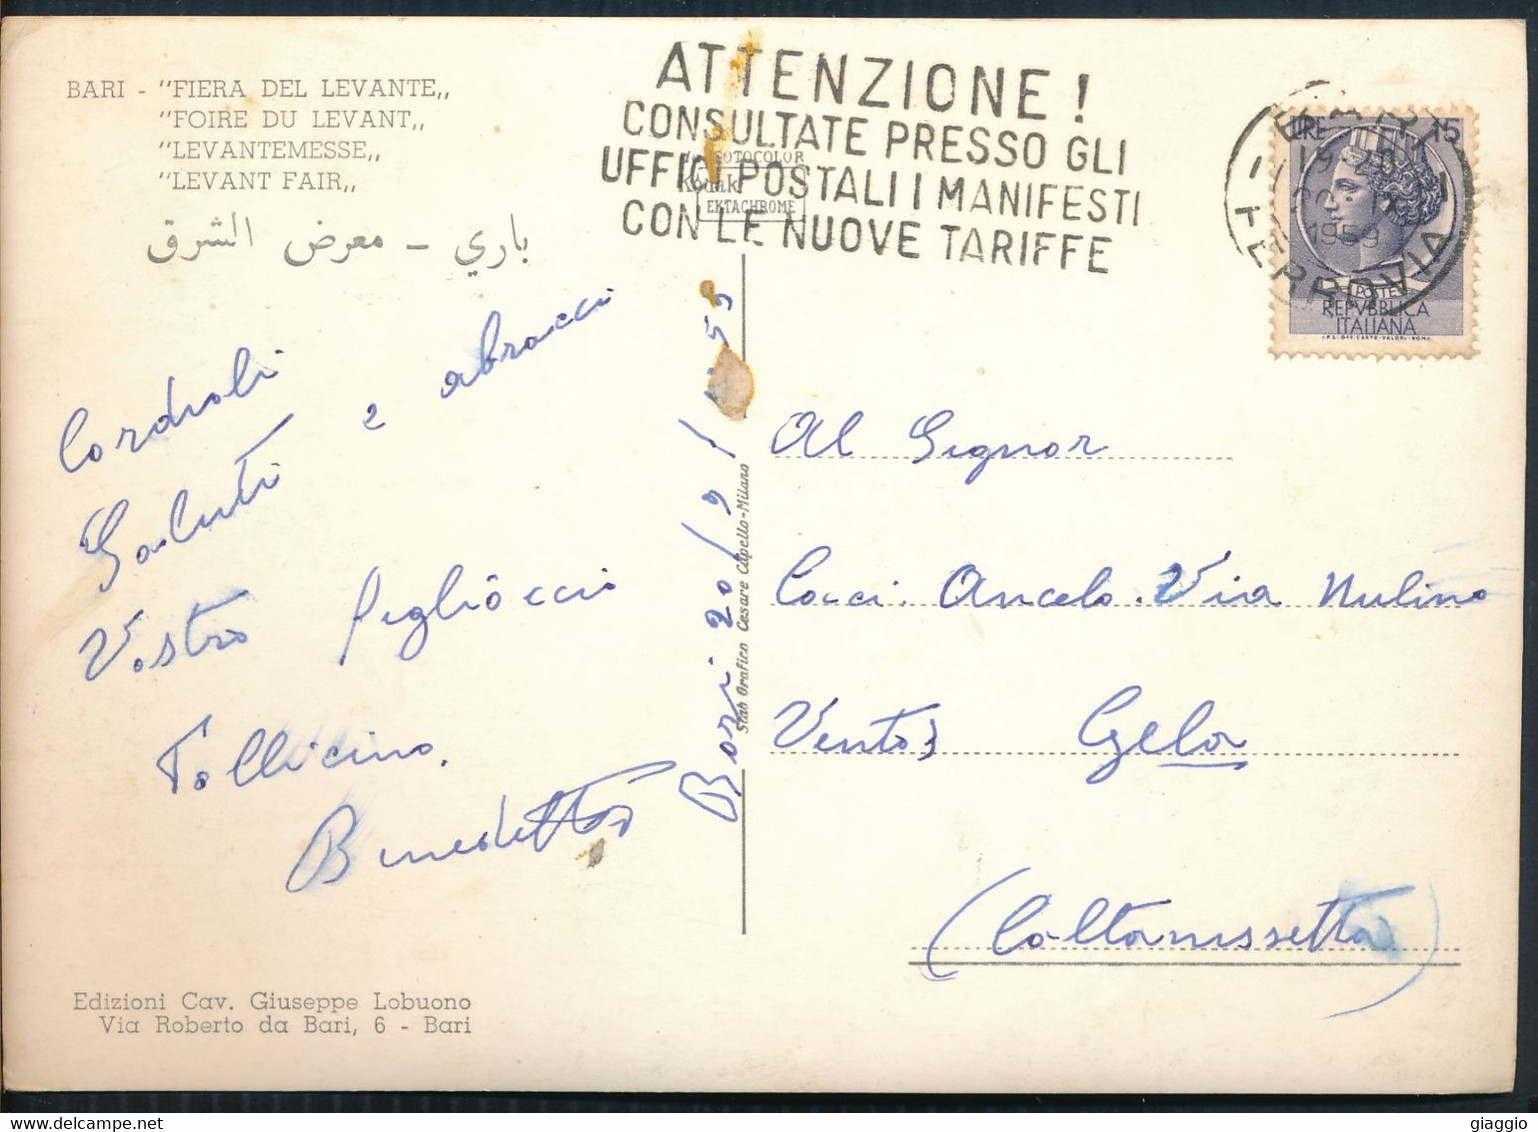 BARI - "FIERA DEL LEVANTE,,
"FOIRE DU LEVANT,,
"LEVANTEMESSE,,
"LEVANT FAIR,,
باري - معرض الشرق
ATTENZIONE !
CONSULTATE PRESSO GLI
UFFICI POSTALI I MANIFESTI
CON LE NUOVE TARIFFE
FOTOCOLOR
Kodak
EKTACHROME
LIRE 15
19-20
1959
FERROVIA
POSTE
REPVBBLICA
ITALIANA
I.P.S.-OFF. CARTE-VALORI-ROMA
Cordiali
Saluti e abracci
Vostro figlioccio
Follicino.
Benedetto
Bari 20/9/59
Stab Grafico Cesare Capello-Milano
Al Signor
Cocci. Ancelo. Via Mulino
Vento 3 Gela
(Caltanissetta)
Edizioni Cav. Giuseppe Lobuono
Via Roberto da Bari, 6 - Bari
giaggio